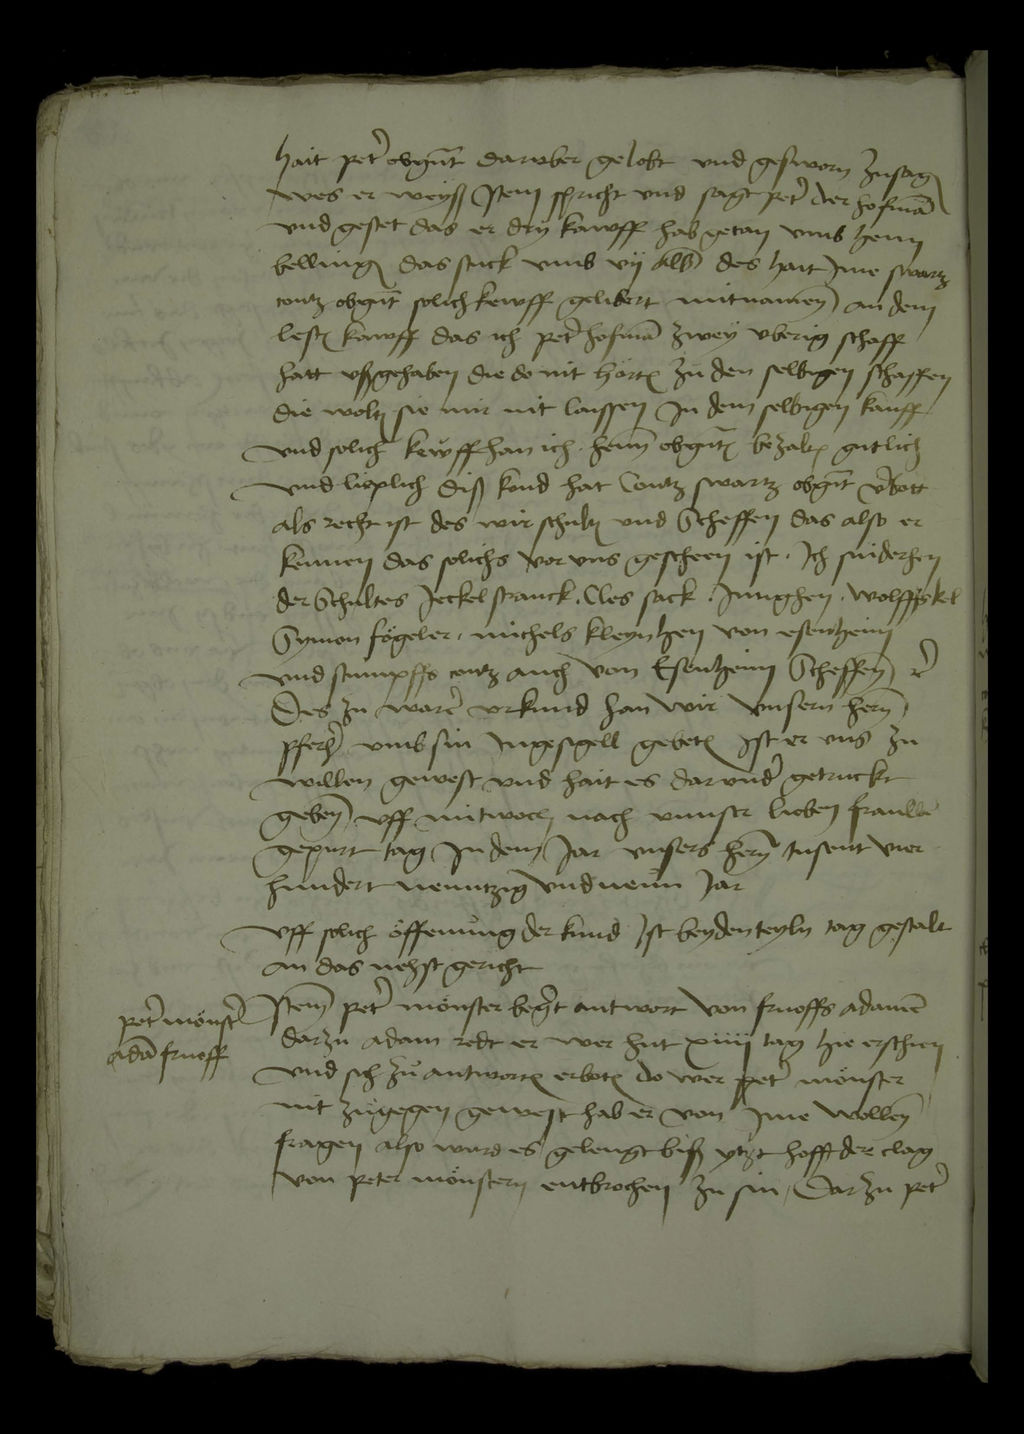 hait pet' obgn̄t darvber gelobt vnd gesworn zu sag
was er weyß Item spricht vnd sagt pet' der hofmā
vnd gestet das er dry kawff hab getan vmb henn
belling das stuck vmb vij alb des hait Ime swartz
contz obgn̄t solich kewff gelibert mitnamen an dem
lest kawff das ich pet' hofmā zwey vberig schaff
hatt vßgehaben die do nit hort zu den selbigen schaffen
die wolt sie mir nit laissen In dem selbigen kauff
vnd solich kewff han ich henn obgn̄t bezalt gutlich
vnd lieplich diß kond hat Contz swartz obgn̄t v'bott
als recht ist des wir schult vnd Scheffen das also er
kennen das solichs vor vns gescheen ist . Ich sniderhen
der Schultes Jeckel stranck . Cles sack . Junghen . wolffskel
Symon fögeler . michels kleynhen von esenheim
vnd stumpffs contz auch von Esenheim Scheffen
Des zu ware vrkund han wir vnsern hern
pferh' vmb sin Ingesigell gebet Ist er vns zu
willen gewest vnd hait es darund' getruckt
geben vff mitwoch nach vnnser lieben frauwē
gepurt tag In dem Jar vnsers hern tusent vier
hundert neuntzig vnd neun Jar
vff solich öffenung der kund Ist beyden teyln tag gestalt
an das nehst gericht
pet' mönst'
adā fruoff
Item pet' mönster beg't antwort von fruoffs adamē
darzu adam redt er wer hut xiiii tag hie erschien
vnd sich zu antwort erbot do wer pet' mönster
nit zugegen gewest hab er von Ime wollen
fragen also ward es gelengt biß ytzt hofft der clag
von peter mönstern entbrochen zu sin / Darzu pet'